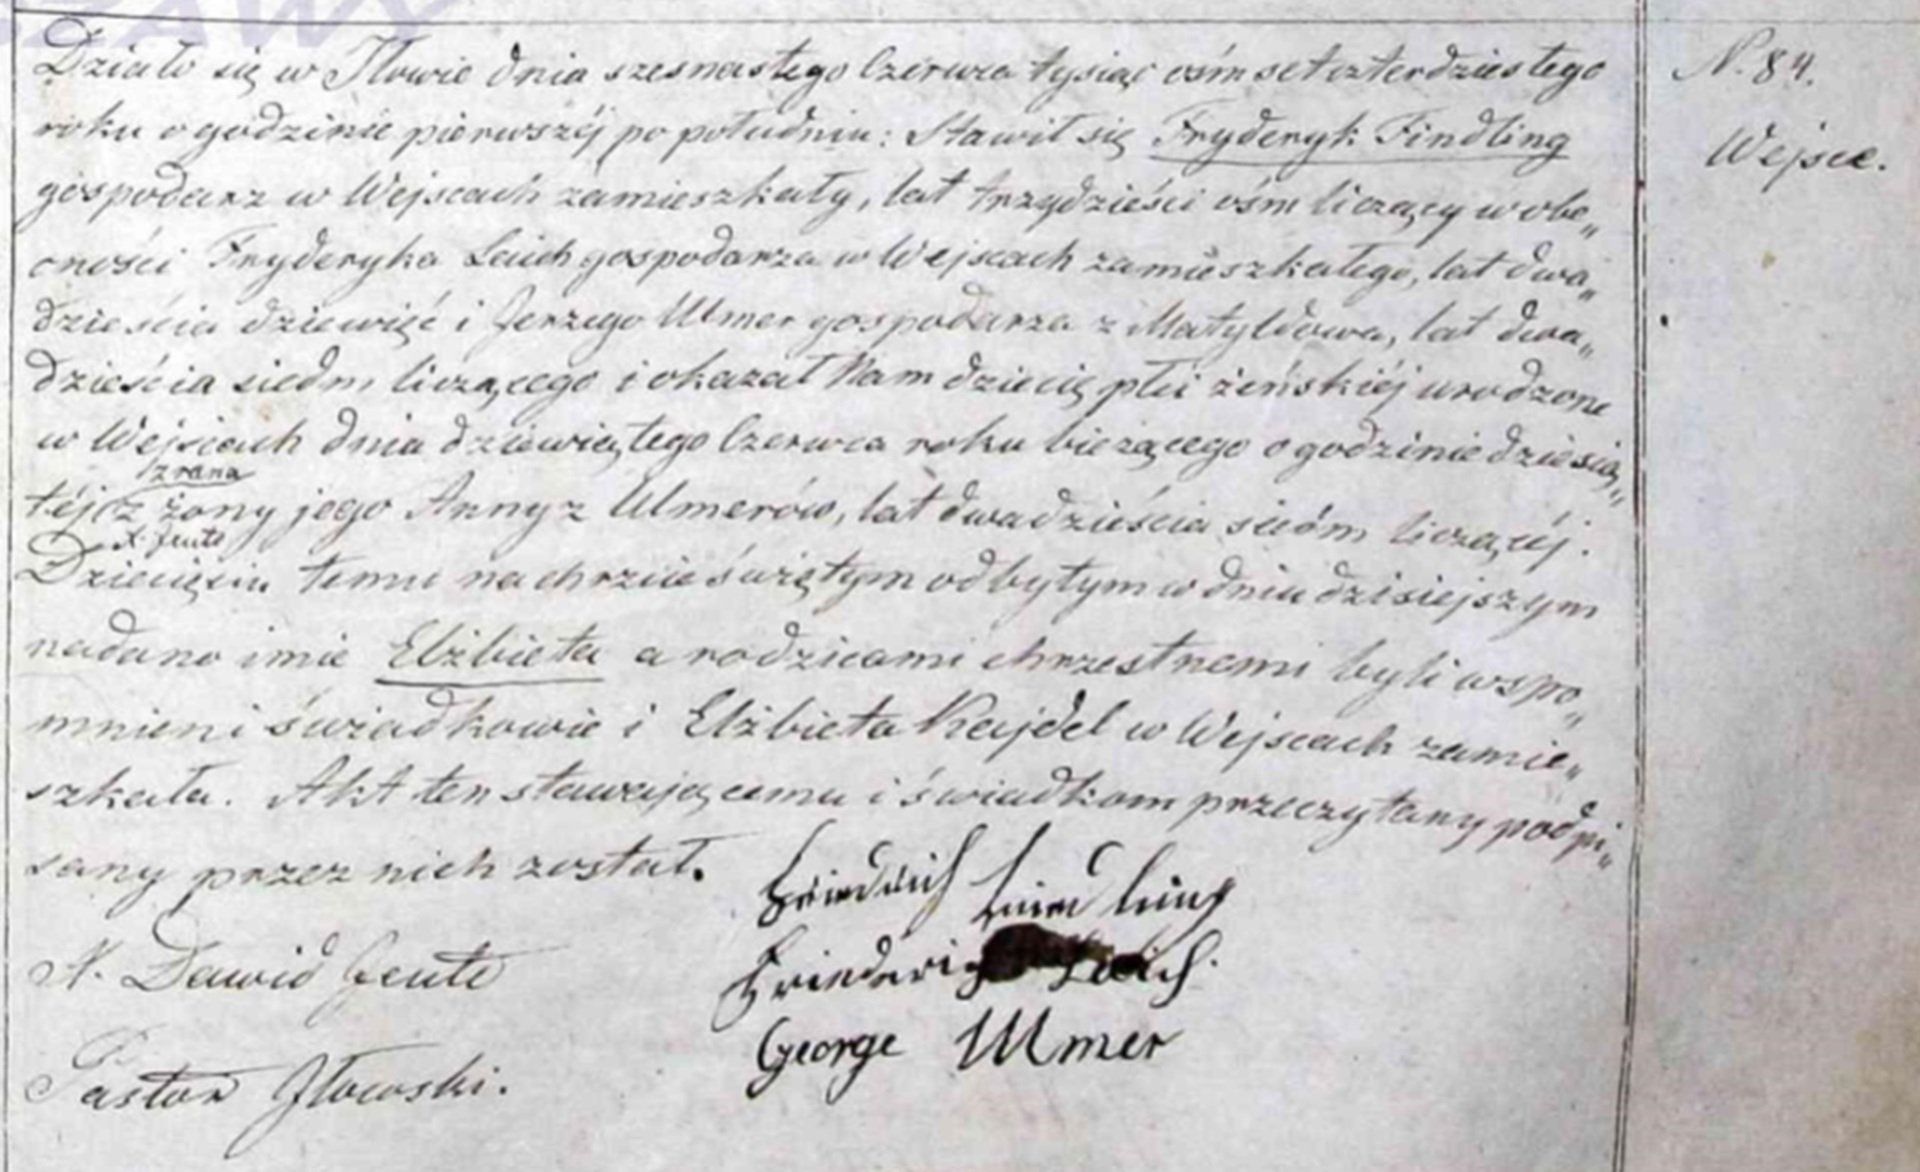 Działo się w Iłowie dnia szesnastego Czerwca tysiąc ośmset czterdziestego
roku o godzinie pierwszéj po południu: Stawił się Fryderyk Findling
gospodarz w Wejscach zamieszkały, lat trzydzieści ośm liczący w obe„
cności Fryderyka Laich gospodarza w Wejscach zamieszkałego, lat dwa„
dzieścia dziewięć i Jerzego Ulmer gospodarza z Matyldowa, lat dwa„
dzieścia siedm liczącego i okazał Nam dziecię płci żeńskiéj urodzone
w Wejscach dnia dziewiątego Czerwca roku bieżącego o godzinie dziesią„
zrana
téj z żony jego Anny z Ulmerów, lat dwadzieścia siedm liczącéj.
X. Jente
Dziecięciu temu na chrzcie świętym odbytym w dniu dzisiejszym
nadano imie Elżbieta a rodzicami chrzestnemi byli wspo„
mnieni świadkowie i Elżbieta Kejdel w Wejscach zamie„
szkała. Akt ten stawającemu i świadkom przeczytany podpi„
sany przez nich został.
Friedrich Findling
X. Dawid Jente
Friederich Laich.
George Ulmer
Pastor Iłowski.
N. 84.
Wejsce.